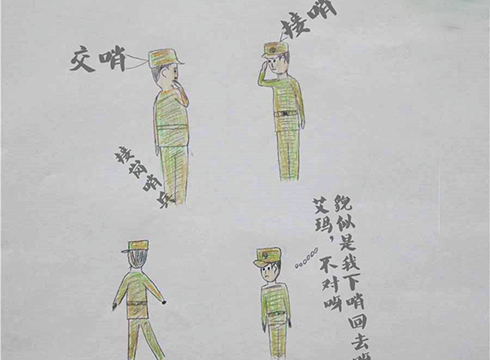 交哨
接哨
接岗哨兵
艾玛，不对呀
貌似是我下哨回去